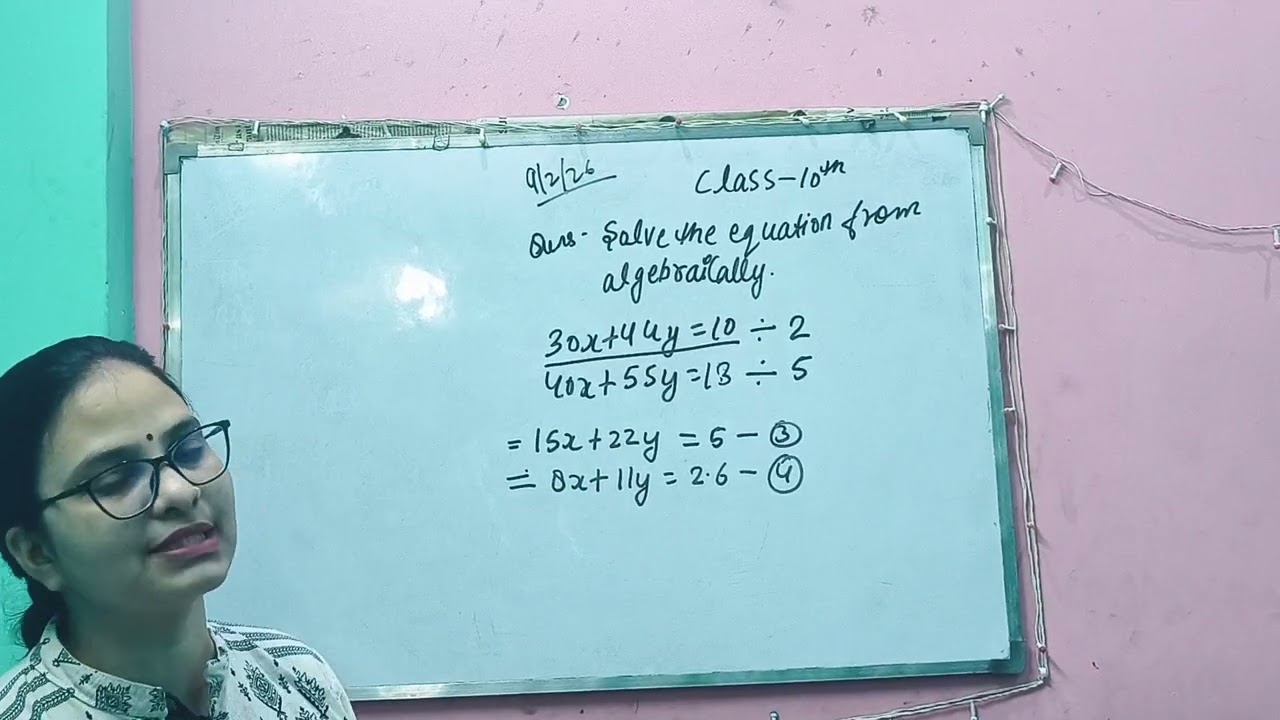 9/2/26
Class-10th
Ques- Solve the equation from
algebraically.
30x+44y=10 ÷ 2
40x+55y=13 ÷ 5
= 15x+22y = 5 - ③
= 8x+11y = 2.6 - ④